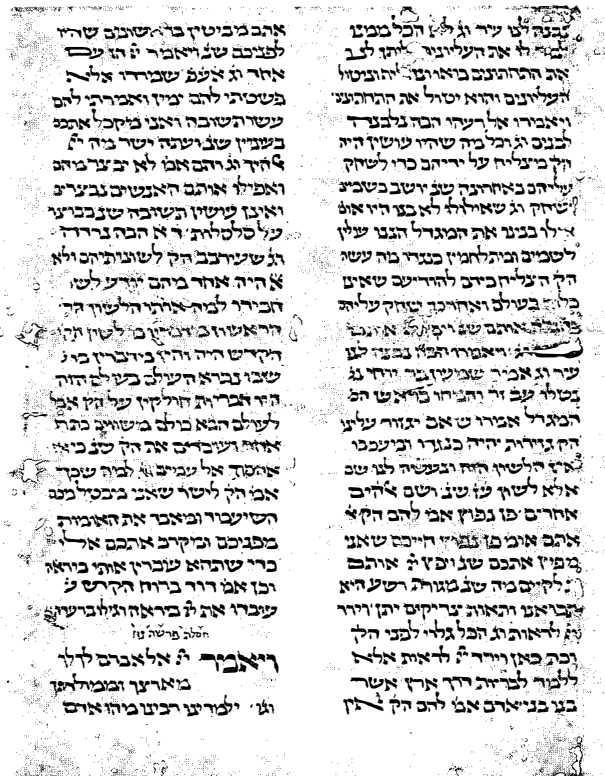 נבנה לנו עיר וג הכל ממנו
לו את העליונים ליתן לנו
את התחתונים בואו ונטול
העליונים והוא יטול את התחתונ
ויאמרו אל רעהו הבה נלבנה
לבנים וג וכל מה שהיו עושין היה
הק מצליח על ידיהם כדי לשחק
עליהם באחרונה שנ יושב בשמים
ישחק וג שאילולי לא בנו היו אומ
אילו בנינו את המגדל היינו עולין
לשמים ומתלחמין כנגדו מה עשה
הק הצליח בידם להודיעם שאינן
בעולם ואחר כך שחק עליהם
אותם שנ ויפץ
ויאמרו הבה נבנה לנו
עיר וג אמר שמעון בר יוחי
עב זר והניחו בראש
המגדל אמרו שאם יגזור עלינו
הק גזירות יהיה כנגדו ומעכבו
אין הלשון הזה ונעשה לנו שם
אלא לשון עז שנ ושם אלהים
אחרים פן נפוץ אמ להם הק
אתם אומ פן נפוץ חייכם שאני
מפיץ אתכם שנ ויפץ ייי אותם
לקיים מה שנ מגורת רשע היא
תבואנו ותאות צדיקים יתן וירד
ייי לראות וג הכל גלוי לפני הק
וכת כאן וירד ייי לראות אלא
ללמד לבריות דרך ארץ אשר
בנו בני אדם אמ להם הק אין
אתם מביטין בראשונים שהיו
לפניכם שנ ויאמר ייי הן עם
אחד וג אעפ שמרדו אלא
פשטתי להם ימין ואמרתי להם
עשו תשובה ואני מיקבל אתכם
בענין שנ ועתה ישר מה ייי
אלהיך וג והם אמ לא יבצר מהם
ואפילו אותם האנשים נבצרים
ואינן עושין תשובה שנ כבוצר
על סלסלות הבה נרדה
וג שעורבב הק לשונותיהם ולא
היה אחד מהם יודע לשון
חבירו למה אותו הלשון
הראשון מדברין בו לשון
הקדש היה והיו מדברין בו
שבו נברא העולם בעולם הזה
היו הבריות חולקין על הק אבל
לעולם הבא כולם משווים כתף
אחד ועובדים את הק שנ כי אז
אהפוך אל עמים וג למה שכך
אמ הק לישר שאני מיבטל מכם
השיעבוד ומאבד את האומות
מפניכם ומקרב אתכם אלי
כדי שתהא עובדין אותי ביראה
וכן אמ דוד ברוח הקדש
עיבדו את ייי ביראה וגילו ברעדה
חסלת פרשת נח
ויאמר ייי אל אברם לך לך
מארצך וממולדתך
וגו ילמדינו רבינו מיהו אדם